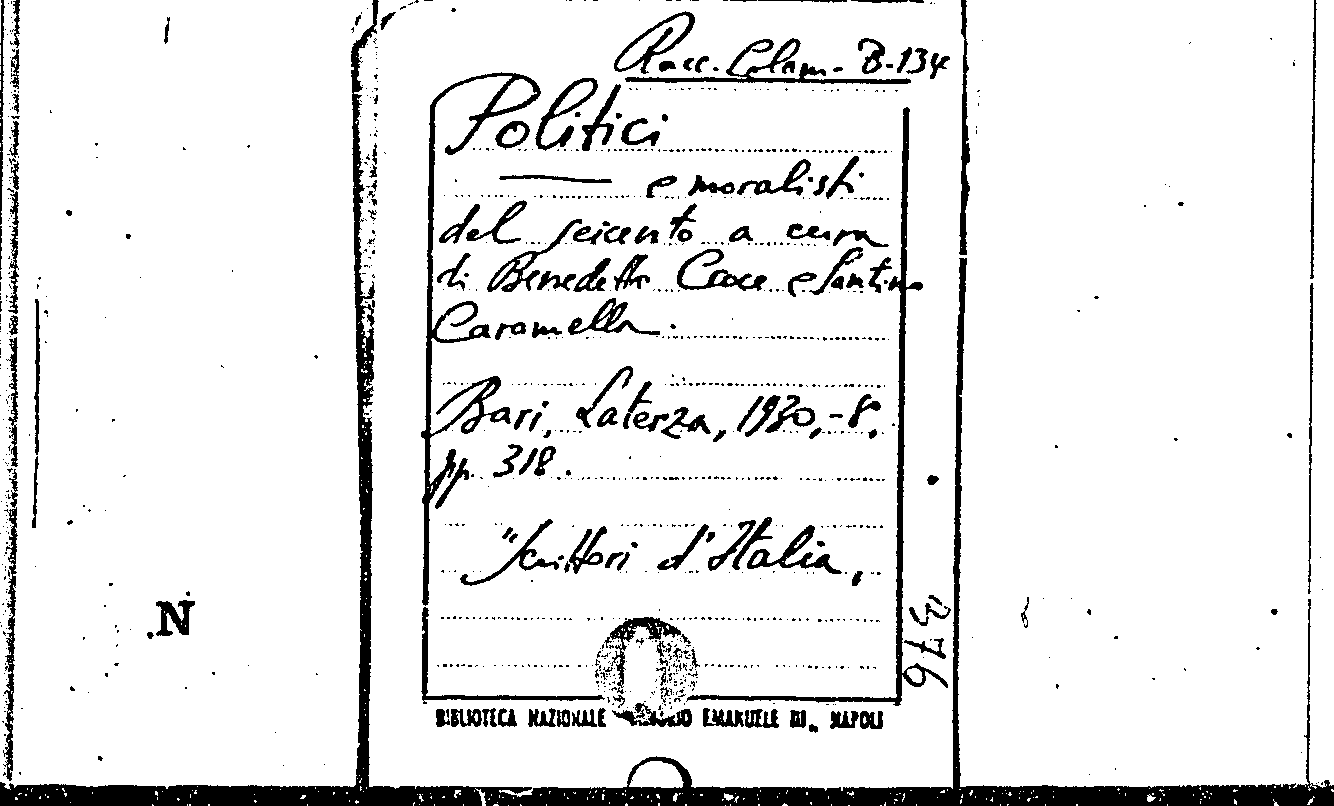 Racc. Colam. B-134
Politici
e moralisti
del seicento a cura
di Benedetto Croce e Santino
Caramella.
Bari, Laterza, 1930,-8.
pp. 318.
"Scrittori d'Italia,
376
N
BIBLIOTECA NAZIONALE EMANUELE III" NAPOLI